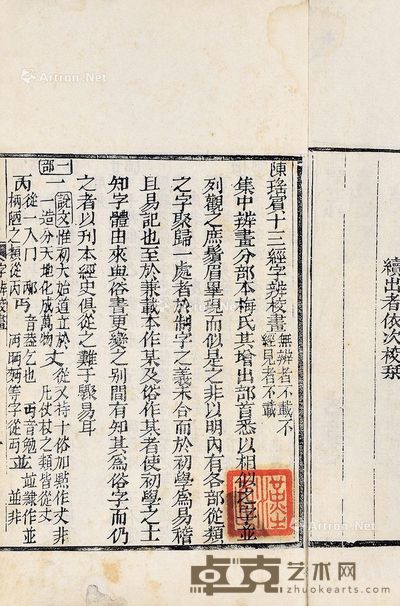 續出者依次校栞
陳瑤賔十三經字辨校畫 無辨者不載不經見者不載
集中辨畫分部本梅氏其增出部首悉以相似之字並
列觀之庶鬚眉畢現而似是之非以明內有各部從類
之字聚歸一處者於制字之義未合而於初學爲易稽
且易記也至於兼載本作某及俗作某者使初學之士
知字體由來與俗書更變之別間有知其爲俗字而仍
之者以刊本經史俱從之難于驟易耳
一部
一 說文惟初大始道立於一造分天地化成萬物 丈 從又持十俗加點作 非凡仗杖之類皆從丈
丙 從一入冂 柄陋之類從丙 丐 音 乞也 丏音勉 等字從丏 並 隸作並
字辨校畫
Artron.Net
Artron.Net
卓克艺术网
zhuokearts.com